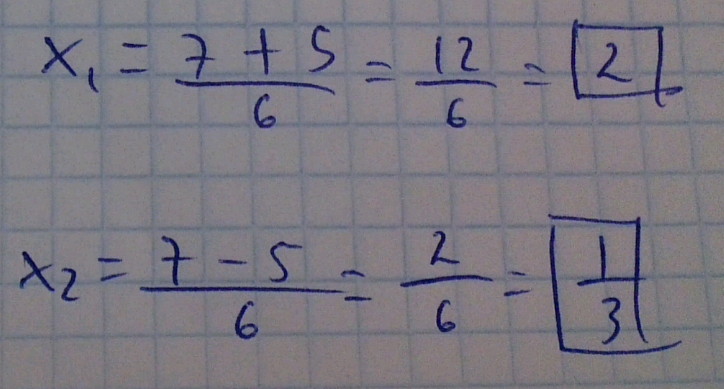 x₁ = (7 + 5)/6 = 12/6 = 2
x₂ = (7 - 5)/6 = 2/6 = 1/3